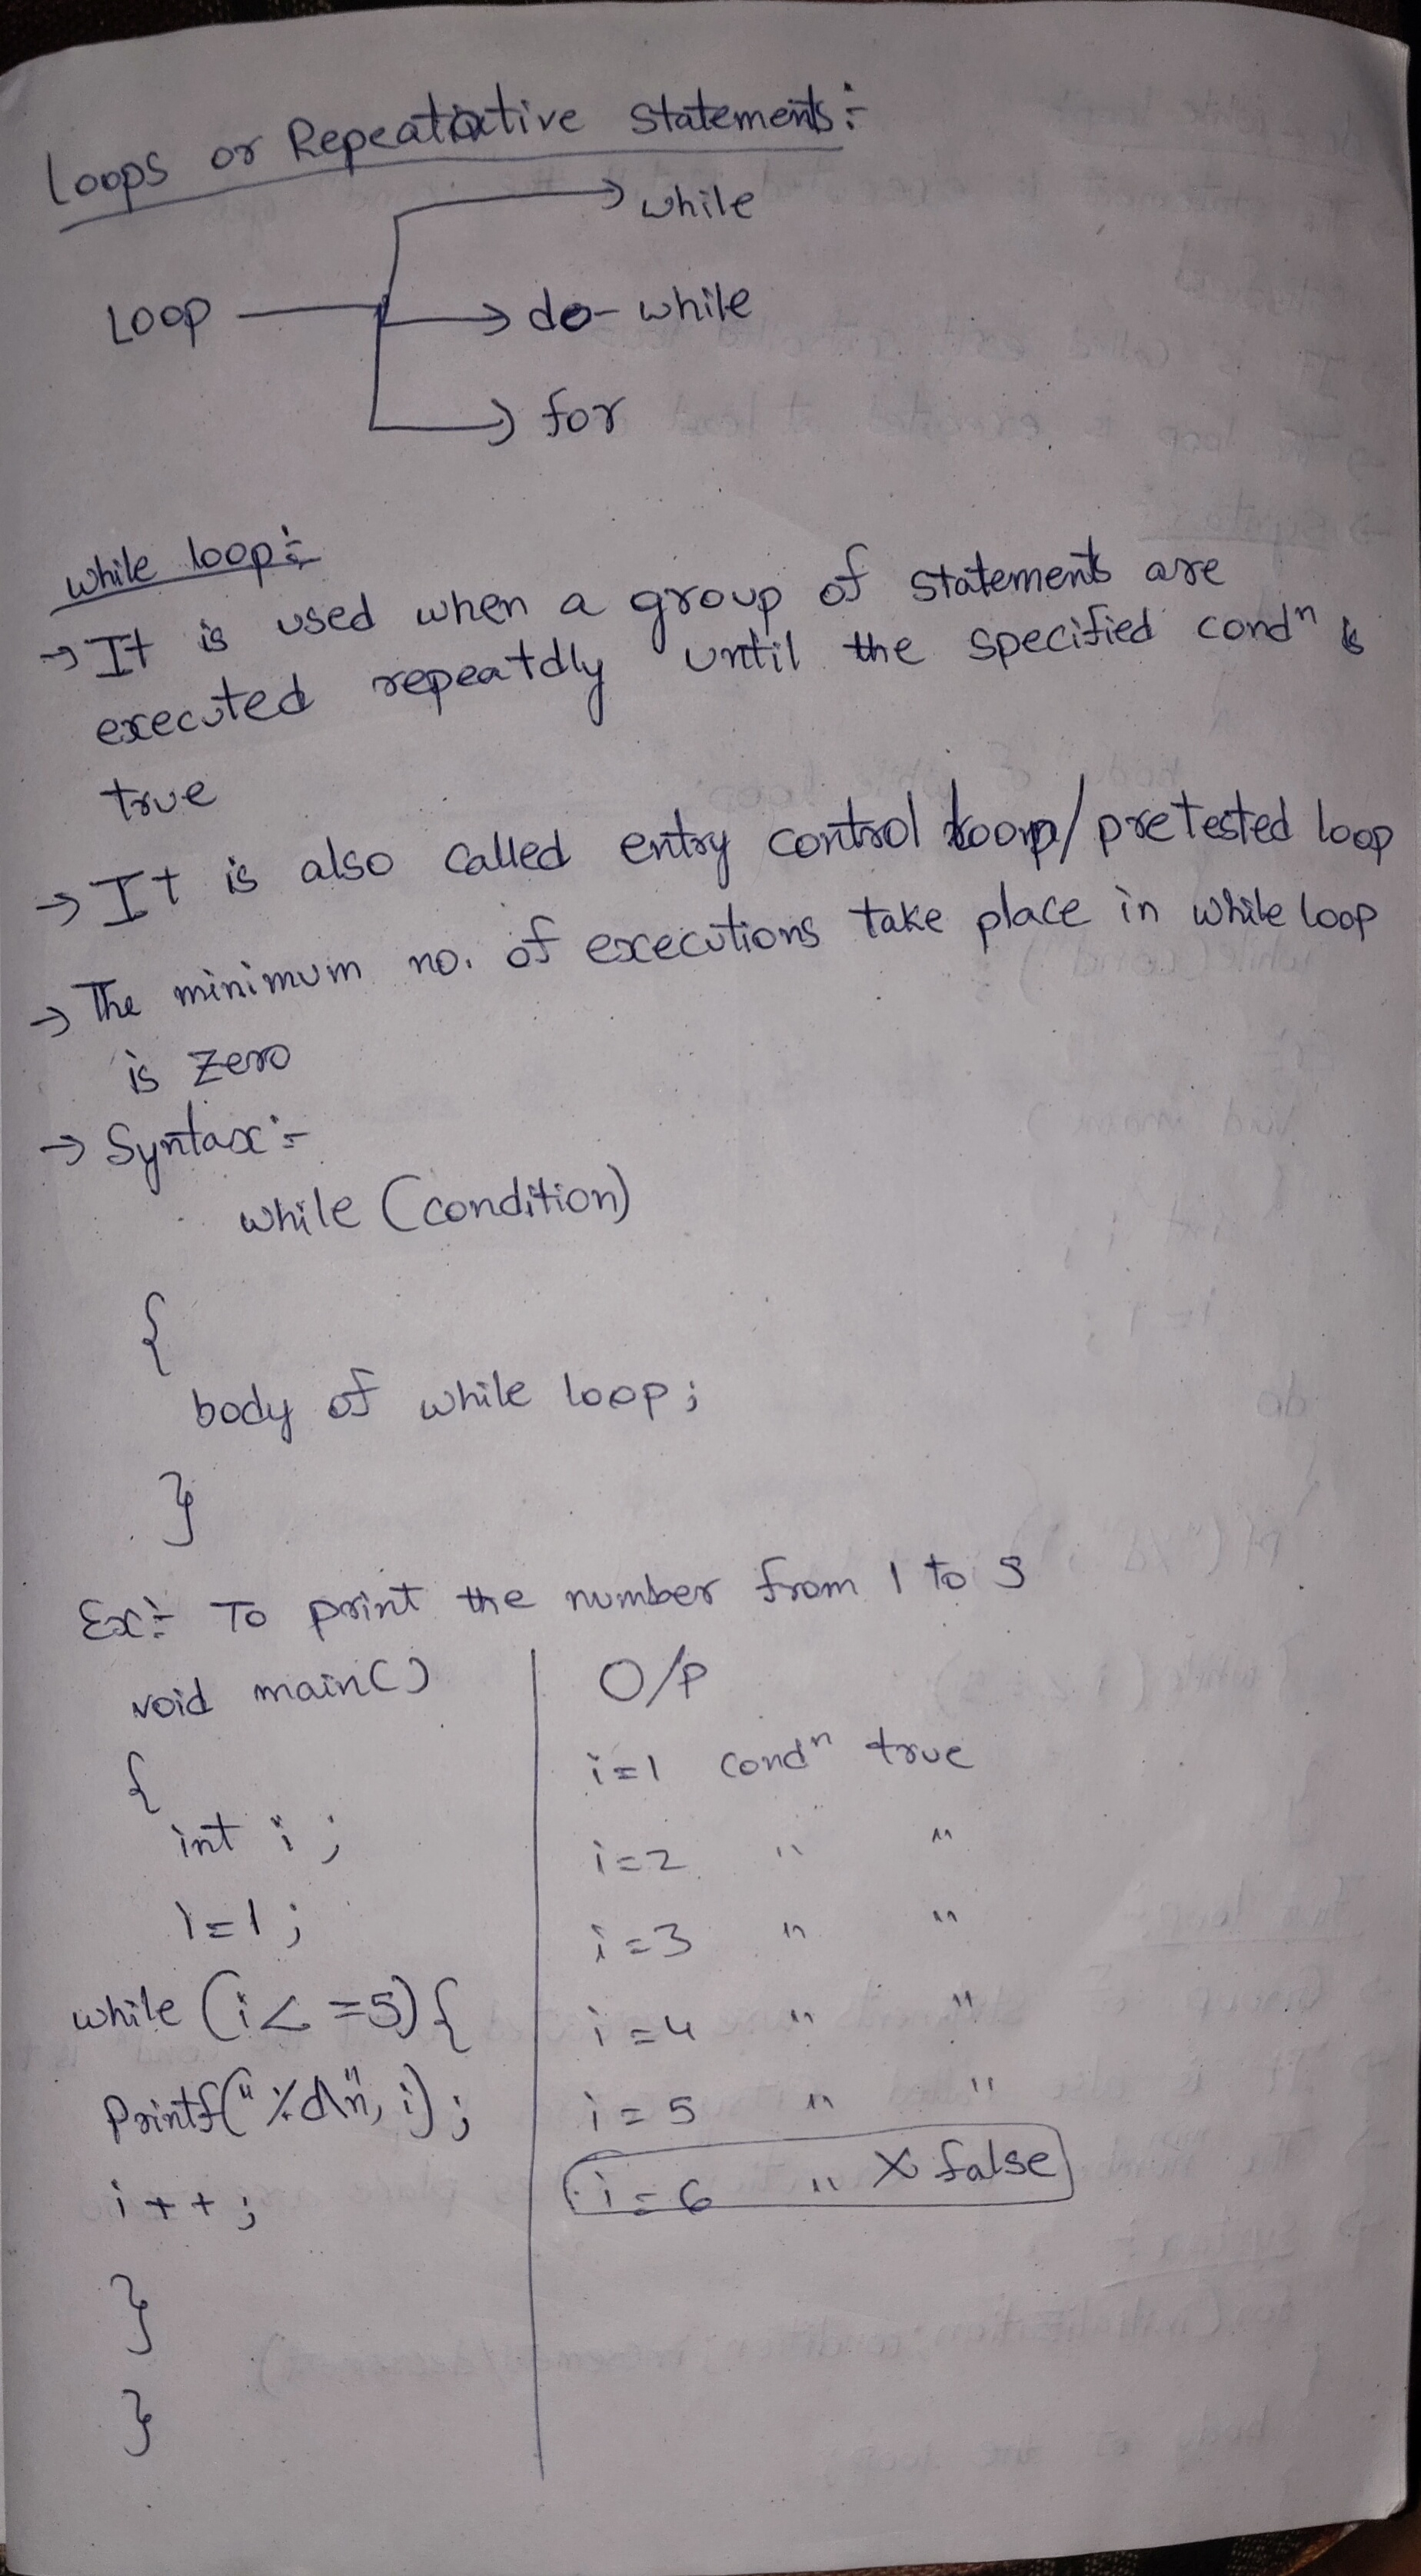 Loops or Repeatative statements:-
while
Loop
do-while
for
while loop:-
→ It is used when a group of statements are
executed repeatdly until the specified condⁿ is
true
→ It is also called entry control loop/pretested loop
→ The minimum no. of executions take place in while loop
is zero
→ Syntax:-
while (condition)
{
body of while loop;
}
Ex:- To print the number from 1 to 5
void main()
{
int i;
i=1;
while (i<=5){
Printf("%d\n", i);
i++;
}
}
O/P
i=1 condⁿ true
i=2 " "
i=3 " "
i=4 " "
i=5 " "
i=6 " X false